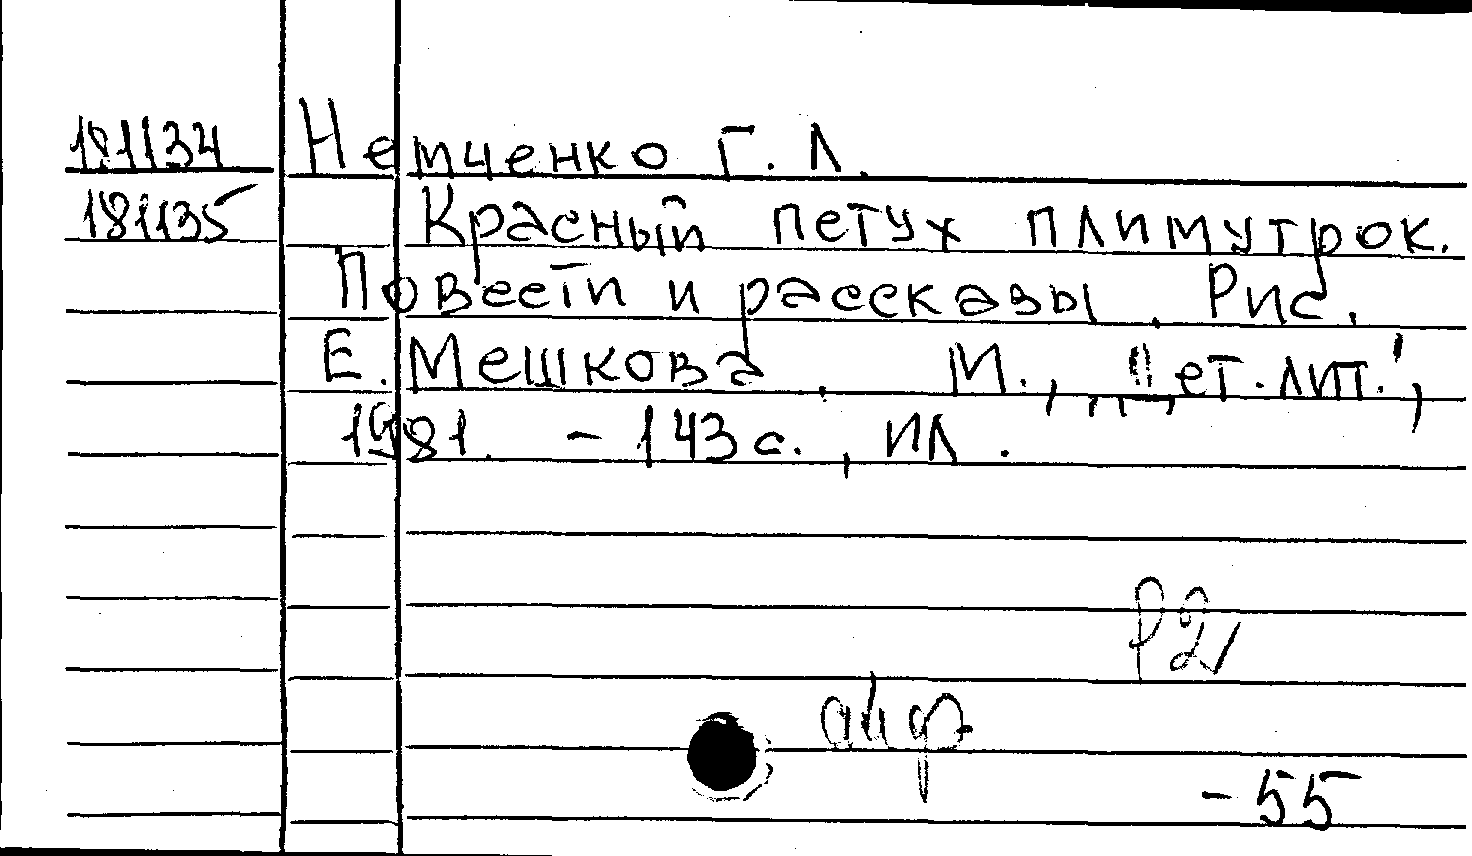 181134 Немченко Г. Л.
181135 Красный петух плимутрок.
Повести и рассказы. Рис.
Е. Мешкова. М., „Дет. лит.",
1981. - 143 с., ил.
Р2
- 55